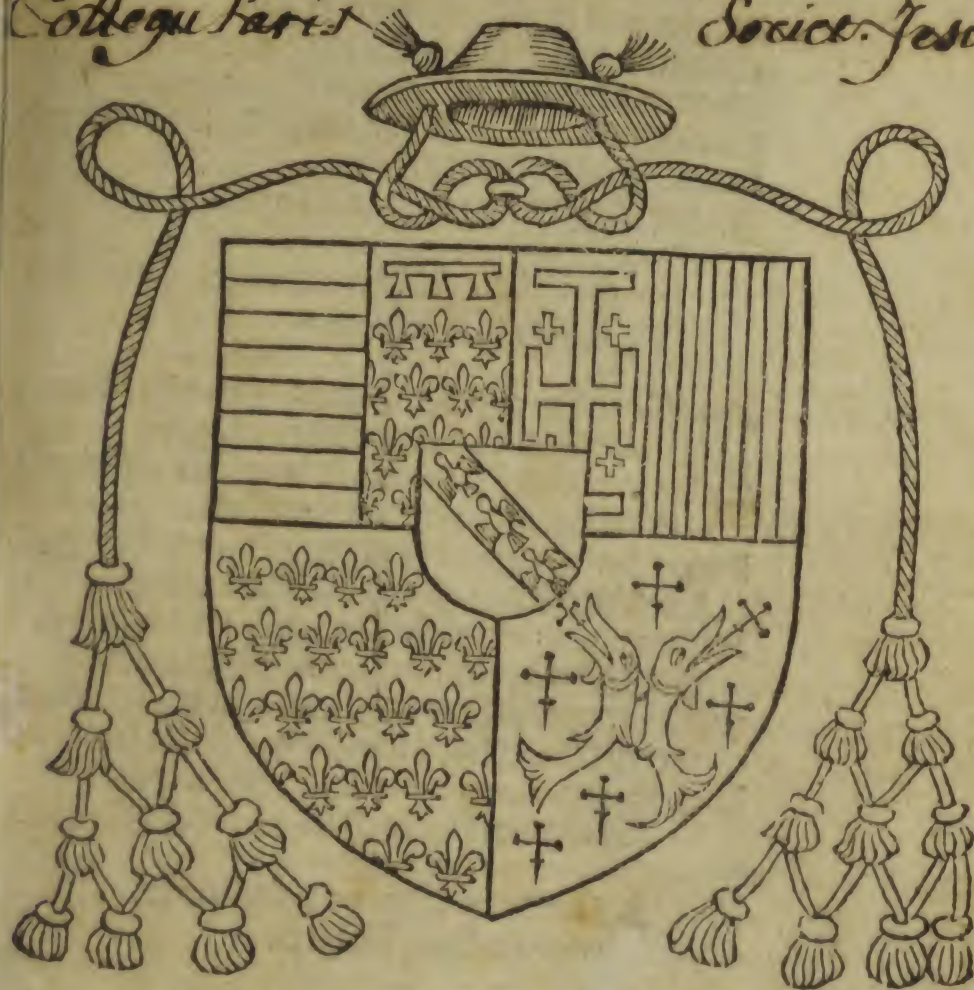 Collegii Paris Societ. Jesu